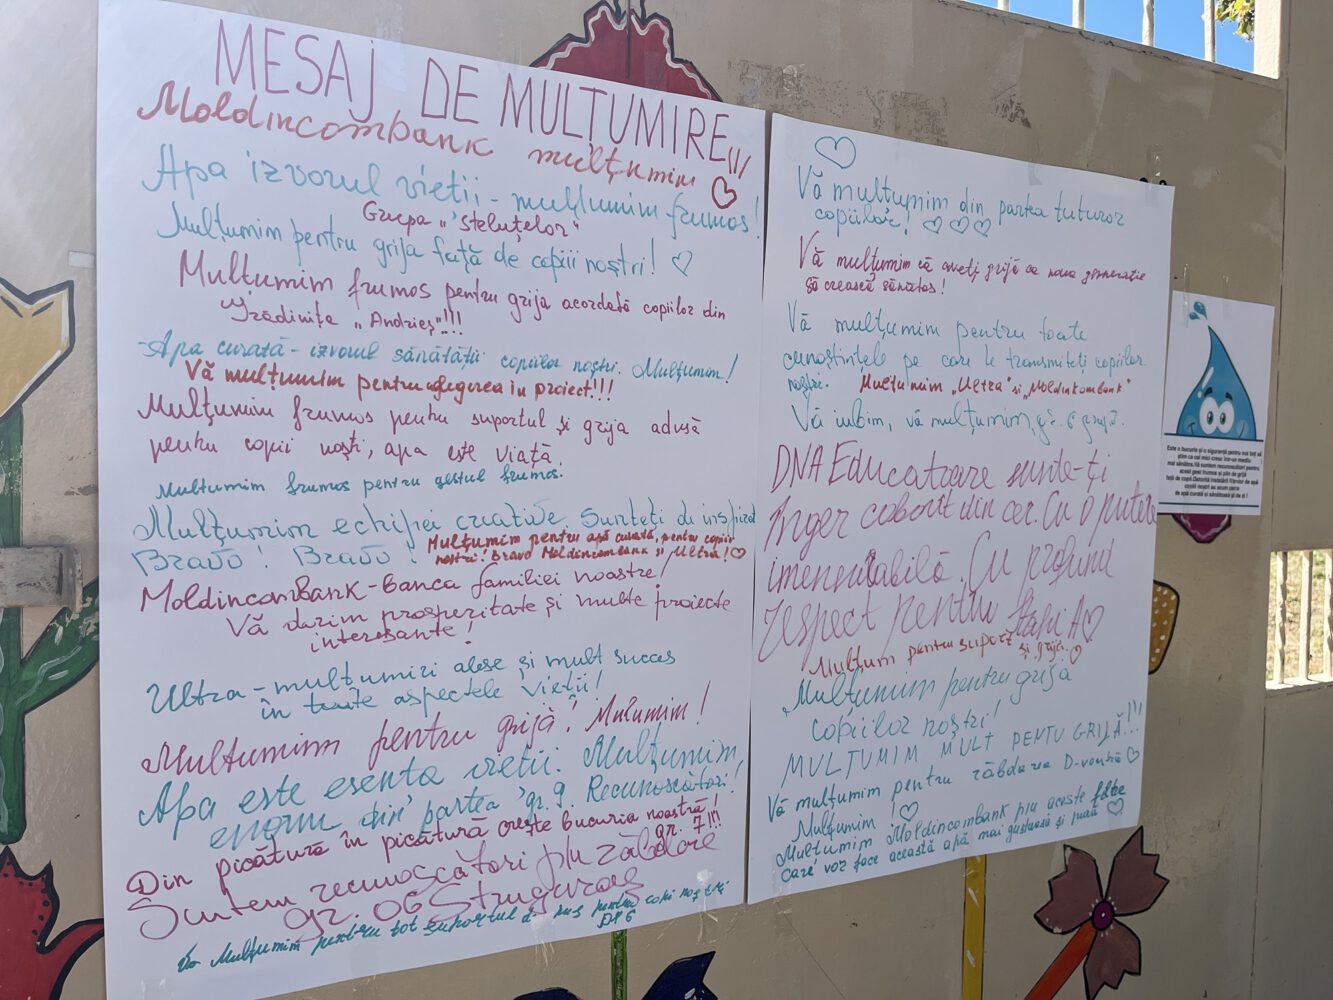 MESAJ DE MULȚUMIRE!!!
Moldincombank mulțumim
Apa izvorul vietii - mulțumim frumos!
Grupa „Steluțelor"
Mulțumim pentru grija față de copiii noștri!
Mulțumim frumos pentru grija acordată copiilor din
Grădinița „Andrieș"!!!
-Apa curată - izvorul sănătății copiilor noștri. Mulțumim!
Vă mulțumim pentru alegerea în proiect!!!
Mulțumim frumos pentru suportul și grija adusă
pentru copii noști, apa este viață.
Multumim frumos pentru gestul frumos.
Mulțumim echipei creative. Sunteți de inspirat
Bravo! Bravo!
Mulțumim pentru apă curată, pentru copiii
noștri! Bravo Moldincombank și Ultra!
MoldinComBank - Banca familiei noastre!
Vă dorim prosperitate și multe proiecte
interesante!
Ultra - mulțumiri alese și mult succes
în toate aspectele vieții!
Multumim pentru grijă! Mulumim!
Apa este esența vietii. Mulțumim
enorm din partea gr. 9. Recunoscători!
Din picătură în picătură crește bucuria noastră!
gr. 7!!!
Suntem recunoscători p/u răbdare
gr. 06 Struguraș
Mulțumim pentru tot suportul pentru copii noștri
Vă mulțumim din partea tuturor
copiilor!
Vă mulțumim că aveți grijă ca noua generație
să crească sănătos!
Vă mulțumim pentru toate
cunoștințele pe care le transmiteți copiilor
noștri. Mulțumim „Ultra" și „Moldinkombank"
Vă iubim, vă mulțumim,
DNA Educatoare sunte-ți
înger coborît din cer. Cu o putere
imensurabilă. Cu profund
respect pentru
Mulțum pentru suport și grija.
Mulțumim pentru grija
copiilor noștri!
MULTUMIM MULT PENTU GRIJĂ!!!
Vă mulțumim pentru răbdarea D-voastră
Mulțumim!
Multumim Moldincombank p/u aceste
care vor face această apă mai gustoasă și pură
Este o bucurie și o siguranță pentru noi toți să
știm ca cei mici cresc într-un mediu
mai sănătos. Vă suntem recunoscători pentru
acest gest frumos și plin de grijă
față de copii. Datorită instalării filtrelor de apă
copiii noștri au acum parte
de apă curată și sănătoasă zi de zi !